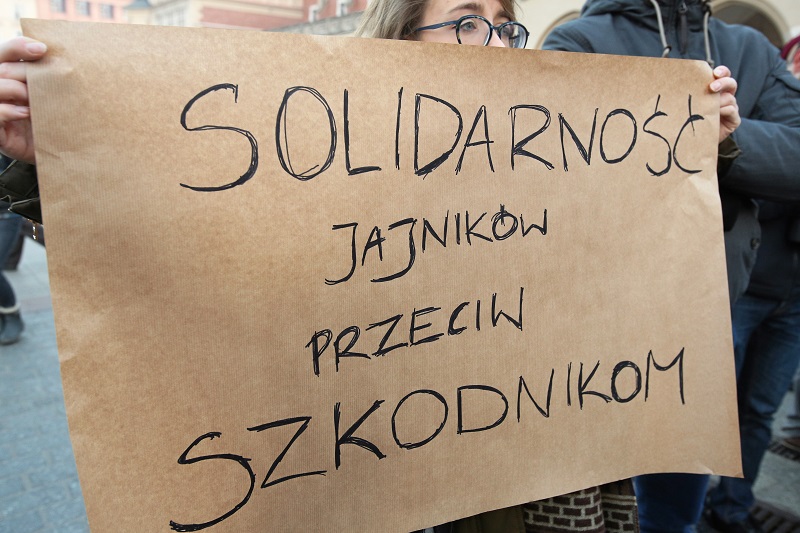 SOLIDARNOŚĆ
JAJNIKÓW
PRZECIW
SZKODNIKOM